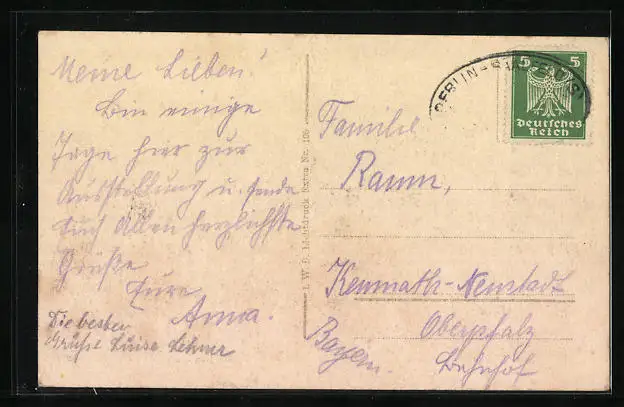 Meine Lieben!
Bin einige
Tage hier zur
Ausstellung u. sende
Euch Allen herzlichste
Grüße
Eure
Anna.
Die besten
Grüße Luise Lehner
I. W. B. Lichtdruck Extra Nr. 105
BERLIN
5 5
Deutsches
Reich
Familie
Raum,
Kemnath-Neustadt
Oberpfalz
Bahnhof
Bayern.